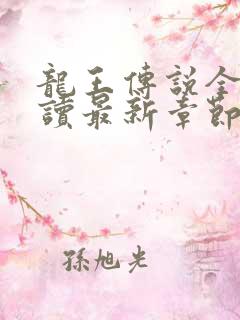 龍王傳說全
讀最新章節
孫旭光